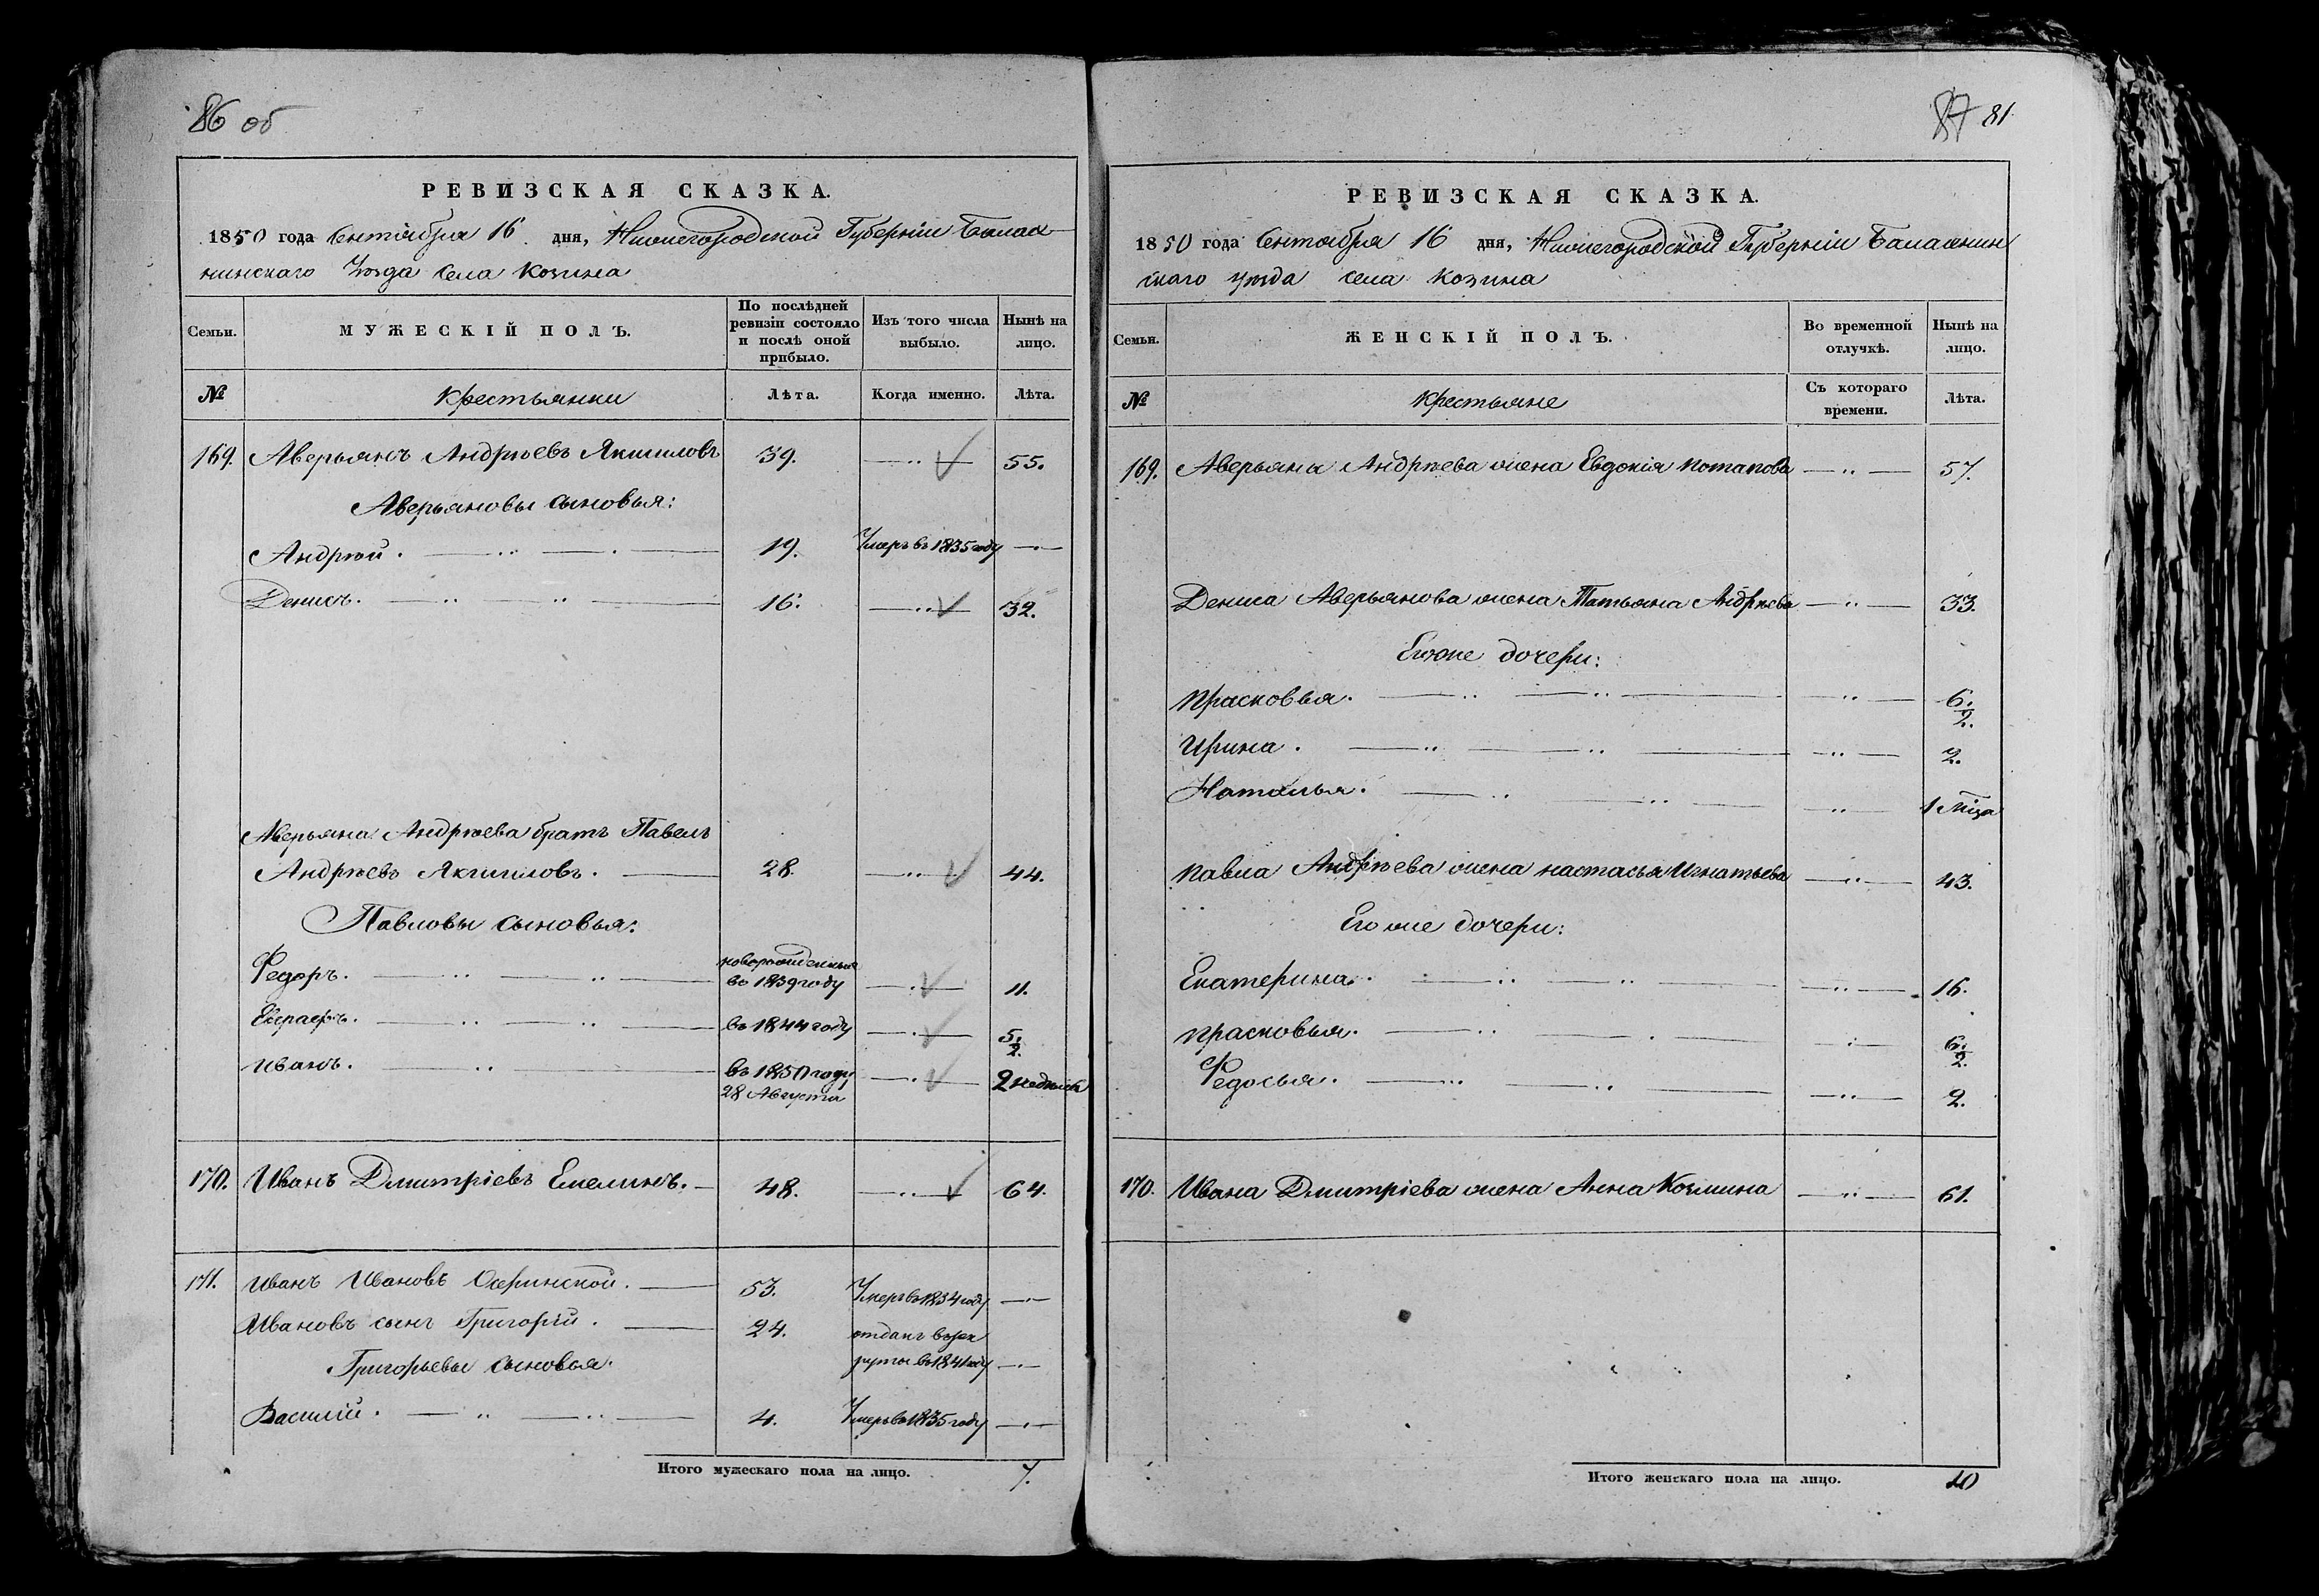 86 об
РЕВИЗСКАЯ СКАЗКА.
1850 года Сентября 16 дня, Нижегородской Губерніи Балах
нинскаго Уѣзда Села Козина
Семьи.
МУЖЕСКІЙ ПОЛЪ.
По послѣдней ревизіи состояло и послѣ оной прибыло.
Изъ того числа выбыло.
Нынѣ на лицо.
№
Крестьянки
Лѣта.
Когда именно.
Лѣта.
169. Аверьянъ Андрѣевъ 39. —..— 55.
Аверьяновы сыновья:
Андрѣй. 19. Умеръ въ 1835 году —.—
Денисъ. 16. —..— 32.
Аверьяна Андрѣева братъ Павелъ
Андрѣевъ 28. —..— 44.
Павловы сыновья:
Федоръ. новорожденный въ 1839 году —.— 11.
Евграфъ. въ 1844 году —.— 5 1/2.
Иванъ. въ 1850 году 28 Августа —.— 2 недѣли
170. Иванъ Дмитріевъ Емелинъ. 48. —..— 64.
171. Иванъ Ивановъ 53. Умеръ въ 1834 году —.—
Ивановъ сынъ Григорій. 24. отданъ въ рек
Григорьевы сыновья. руты въ 1841 году —.—
Василій. 4. Умеръ въ 1835 году —.—
Итого мужескаго пола на лицо. 7.
87 81
РЕВИЗСКАЯ СКАЗКА.
1850 года Сентября 16 дня, Нижегородской Губерніи Балахнин
скаго уѣзда села Козина
Семьи.
ЖЕНСКІЙ ПОЛЪ.
Во временной отлучкѣ.
Нынѣ на лицо.
№
Крестьяне
Съ котораго времени.
Лѣта.
169. Аверьяна Андрѣева жена Евдокія Потапова —..— 57.
Дениса Аверьянова жена Татьяна Андрѣева —..— 33.
Егоже дочери:
Прасковья. ..— 6 1/2.
Ирина. ..— 2.
Наталья. ..— 1 мѣца
Павла Андрѣева жена Настасья Игнатьева —..— 43.
Его же дочери:
Екатерина. —..— 16.
Прасковья. —.— 6 1/2.
Федосья. —..— 2.
170. Ивана Дмитріева жена Анна Козмина —..— 61.
Итого женскаго пола на лицо. 10